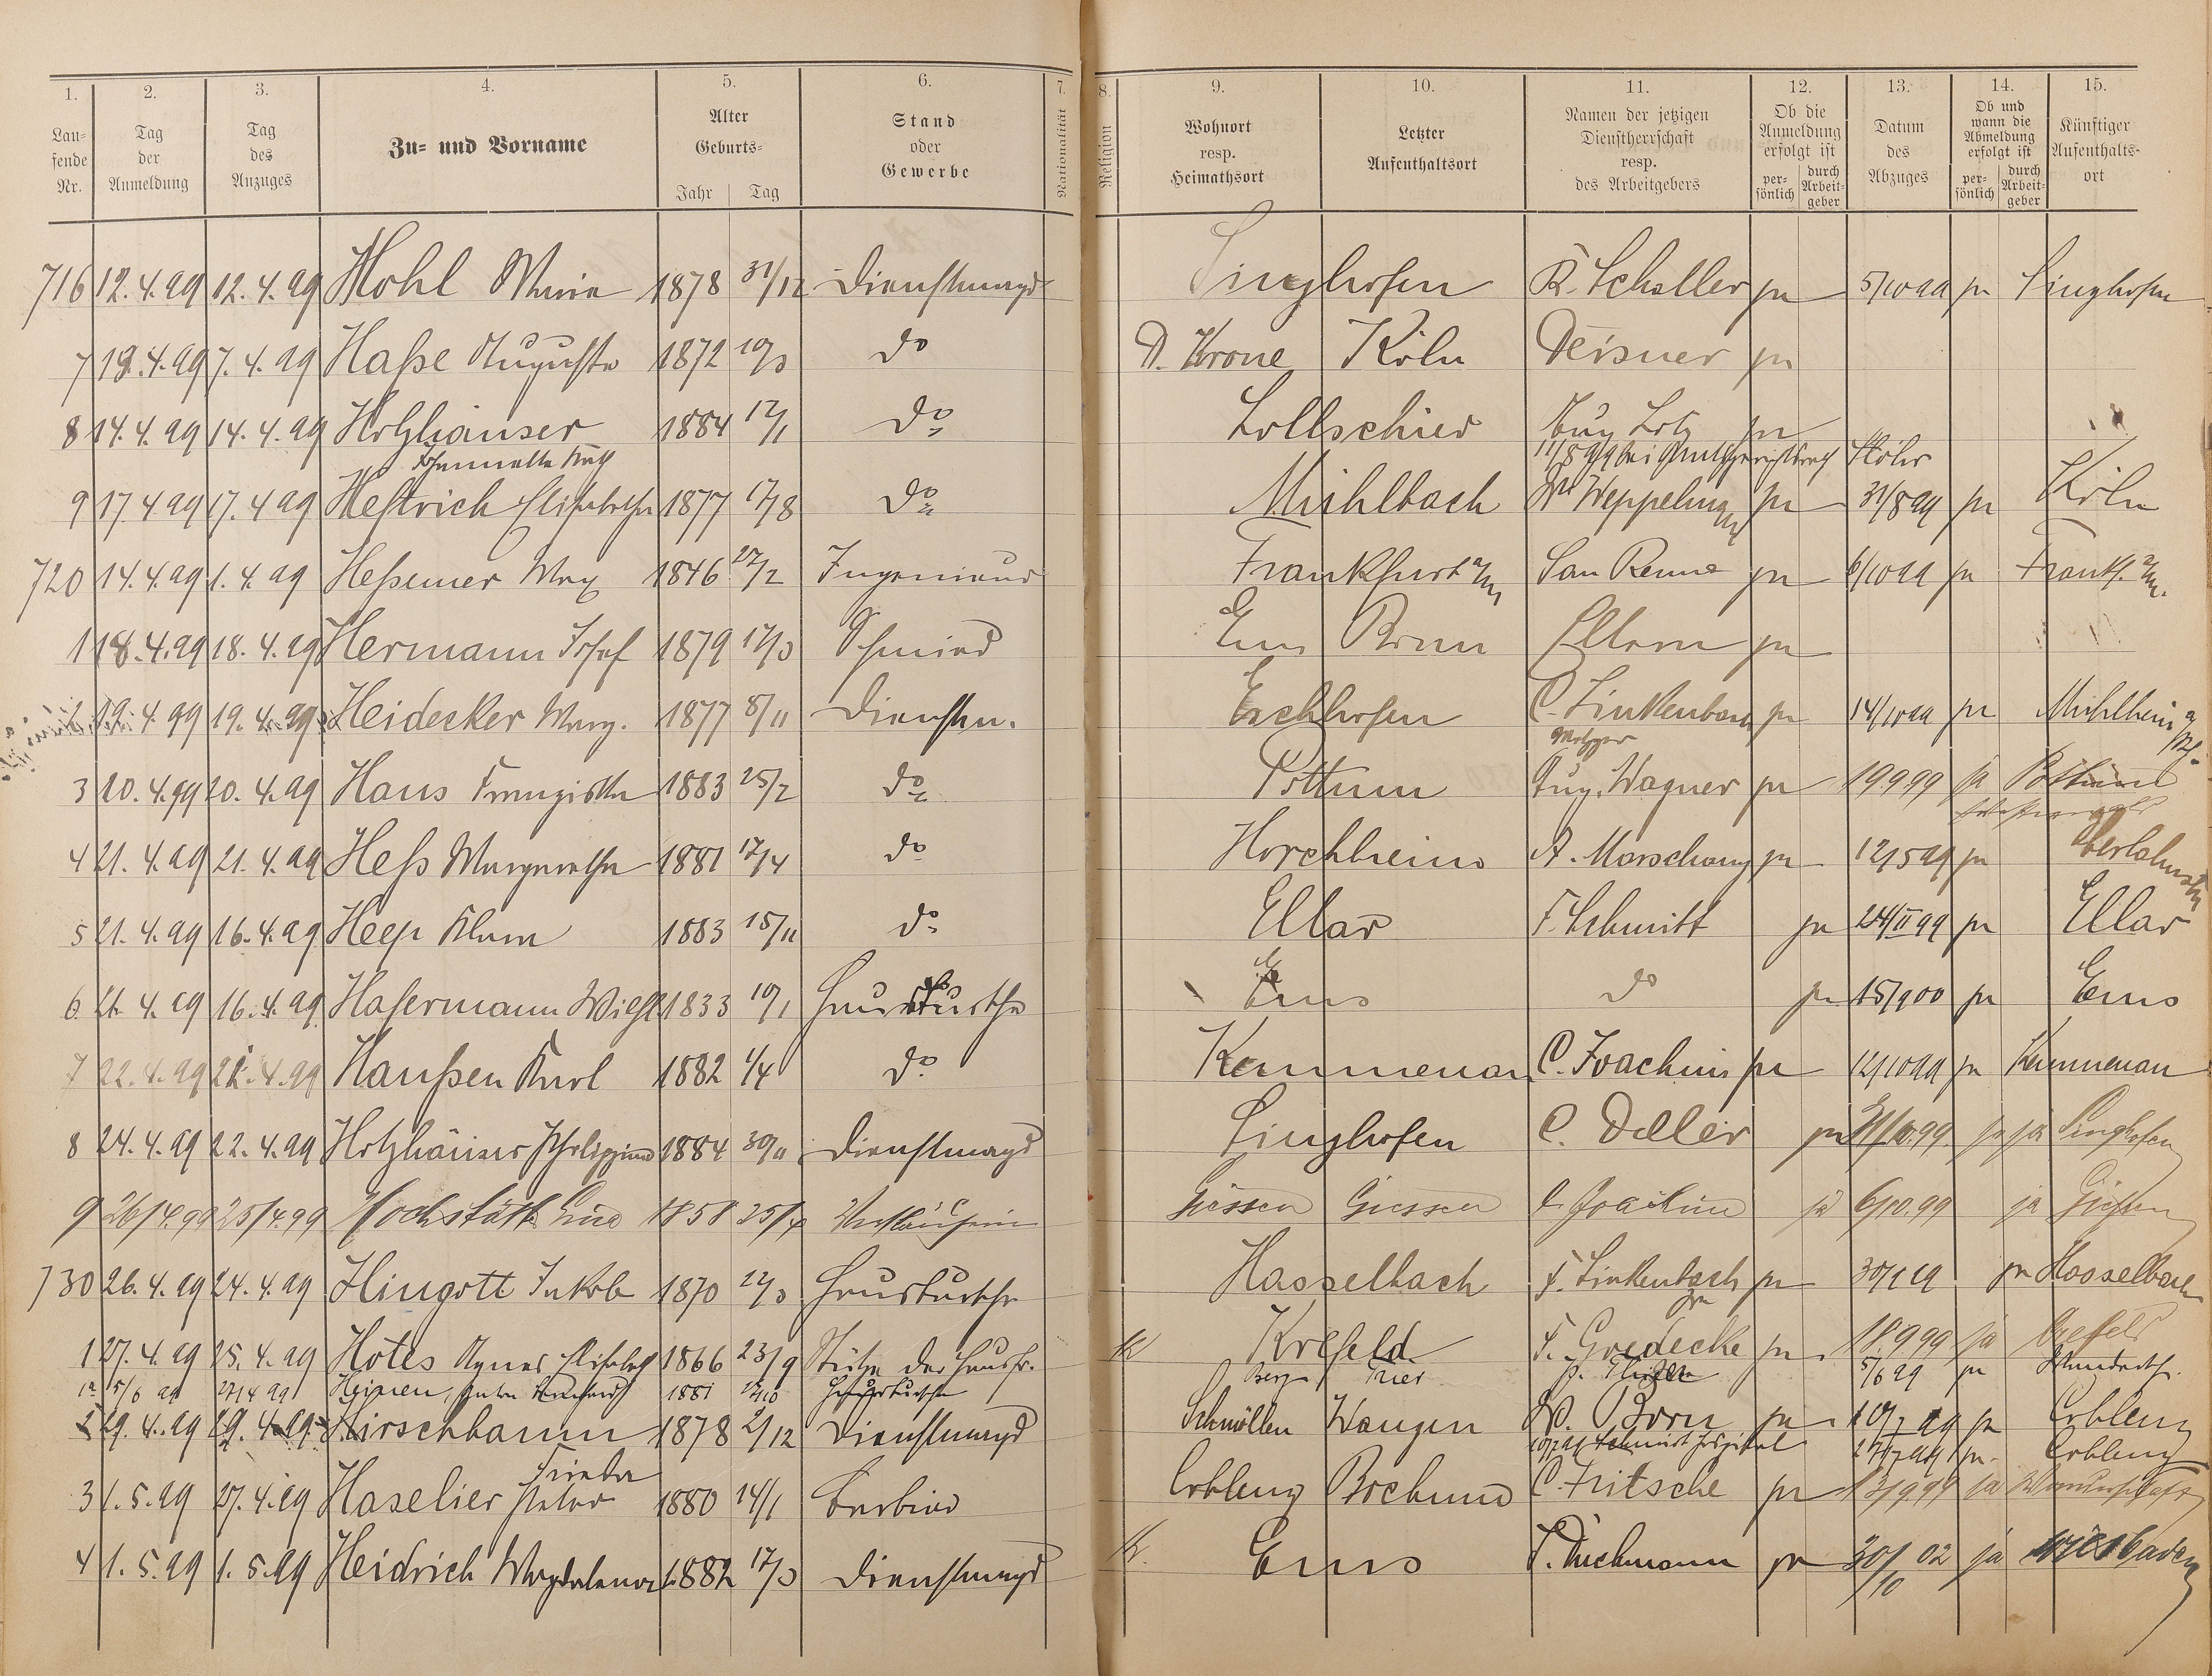 1.
Lau=
fende
Nr.
2.
Tag
der
Anmeldung
3.
Tag
des
Anzuges
4.
Zu= und Vorname
5.
Alter
Geburts=
Jahr | Tag
6.
Stand
oder
Gewerbe
7.
Nationalität
8.
Religion
9.
Wohnort
resp.
Heimathsort
10.
Letzter
Aufenthaltsort
11.
Namen der jetzigen
Dienstherrschaft
resp.
des Arbeitgebers
12.
Ob die
Anmeldung
erfolgt ist
per=
sönlich
durch
Arbeit=
geber
13.
Datum
des
Abzuges
14.
Ob und
wann die
Abmeldung
erfolgt ist
per=
sönlich
durch
Arbeit=
geber
15.
Künftiger
Aufenthalts=
ort
716 12.4.99 12.4.99 Hohl Maria 1878 31/12 Dienstmagd Singhofen R. Scheller ja 5/10 99 ja Singhofen
7 12.4.99 7.4.99 Haße Auguste 1872 10/3 do D. Krone Köln Deisner ja
8 14.4.99 14.4.99 Holzhäuser 1884 12/1 do Lollschied Aug Lotz ja
9 17 4 99 17.4 99 Hestrich Elisabetha 1877 17/8 do Mühlbach ja 31/8 99 ja Köln
720 14.4.99 1.4.99 Heßemer Max 1846 27/2 Ingenieur Frankfurt a/m San Remo ja 6/10 99 ja Frankf. a/m.
1 18.4.99 18.4.99 Hermann Josef 1879 17/3 Schmied Ems Bonn ja
19.4 99 19.4.99 Heidecker Marg. 1877 8/11 Dienstm. Eschhofen C. Linkenbach ja 14/10 99 ja Mühlheim a/Rh.
Metzger
3 20.4.99 20.4.99 Haus Franziska 1883 25/2 do Pottum Aug. Wagner ja 19 9 99 ja Pottum
4 21.4.99 21.4.99 Heß Margaretha 1881 17/4 do Horchheim A. Marschang ja 12/5 99 ja Oberlahnstein
5 21.4.99 16.4.99 Heep Klara 1883 15/11 do Ellar F. Schmitt ja 24/II 99 ja Ellar
6 21.4.99 16.4.99 Hasermann Wilh. 1833 10/1 Hausbursche Ems do ja 15/9 00 ja Ems
7 22.4.99 21.4.99 Haußen Karl 1882 1/4 do Kemmenau C. Joachim ja 12/10 99 ja Kemmenau
8 24.4.99 22.4.99 Holzhäuser Philippine 1884 30/11 Dienstmagd Singhofen C. Deller ja 31/10.99. ja Singhofen
9 26/4.99 25/4.99 Hochstätt 1858 25/4 Verkäuferin Giessen Giessen C. Joachim ja 6/10.99 ja Gießen
730 26.4.99 24.4.99 Hingott Jakob 1870 12/3 Hausbursche Hasselbach F. Linkenbach ja ja Hasselbach
1 27.4.99 25.4.99 Hotes Agnes Elisabeth 1866 23/9 Stütze der Hausfr. Krefeld F. Goedecke ja 18.9 99 ja Crefeld
1a 5/6 99 27/4 99 Heinen, 1881 Hausbursche Berg Trier 5/6 99 ja
2 29.4.99 29.4.99 Hirschbaum 1878 2/12 Dienstmagd Schmöllen Wangen Born ja ja Coblenz
Frieda Schmidt Hospital ja Coblenz
3 1.5.99 27.4.99 Haselier Peter 1880 14/1 Barbier Coblenz Bochum C. Fritsche ja 13/9 99 ja Wanderschaft
4 1.5.99 1.5.99 Heidrich Magdalena 1882 17/3 Dienstmagd Ems ja 30/10 02 ja Wiesbaden